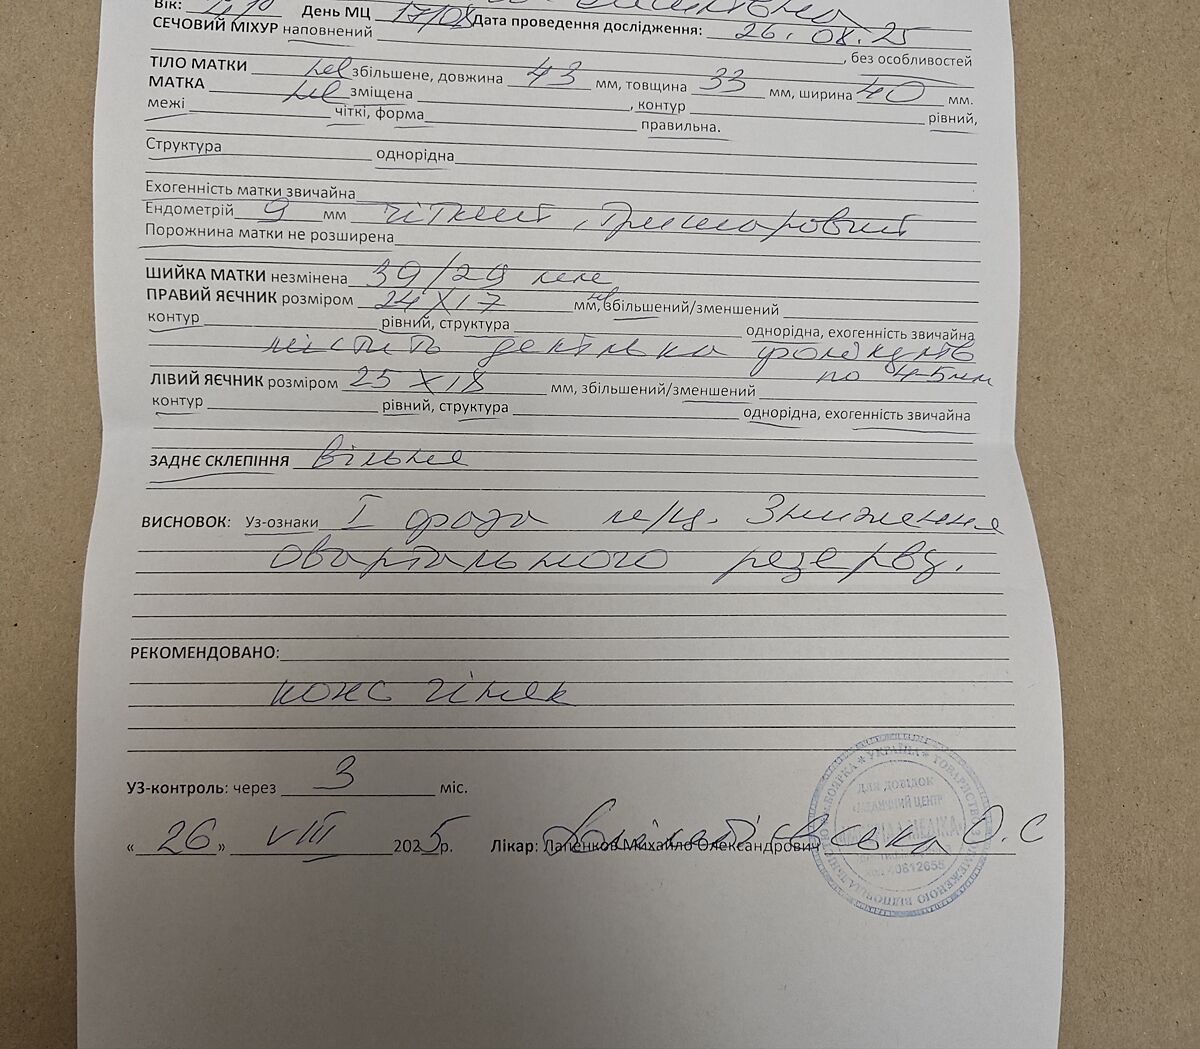 Вік: День МЦ 17/08 Дата проведення дослідження: 26.08.25
СЕЧОВИЙ МІХУР наповнений , без особливостей
ТІЛО МАТКИ не збільшене, довжина 43 мм, товщина 33 мм, ширина 40 мм.
МАТКА не зміщена , контур рівний,
межі чіткі, форма правильна.
Структура однорідна
Ехогенність матки звичайна
Ендометрій 9 мм чіткий, тришаровий
Порожнина матки не розширена
ШИЙКА МАТКИ незмінена 39/29 мм
ПРАВИЙ ЯЄЧНИК розміром 24 х 17 мм, не збільшений/зменшений
контур рівний, структура однорідна, ехогенність звичайна
містить декілька фолікулів
по 4-5мм
ЛІВИЙ ЯЄЧНИК розміром 25 х 18 мм, збільшений/зменшений
контур рівний, структура однорідна, ехогенність звичайна
ЗАДНЄ СКЛЕПІННЯ вільне
ВИСНОВОК: Уз-ознаки I фаза м/ц. Зниження
оваріального резерву.
РЕКОМЕНДОВАНО:
конс гінек
УЗ-контроль: через 3 міс.
« 26 » VIII 2025р. Лікар: Лапенков Михайло Олександрович О.С
УКРАЇНА * ТОВАРИСТВО З ОБМЕЖЕНОЮ ВІДПОВІДАЛЬНІСТЮ * м.БОЯРКА
ДЛЯ ДОВІДОК
МЕДИЧНИЙ ЦЕНТР
40612655